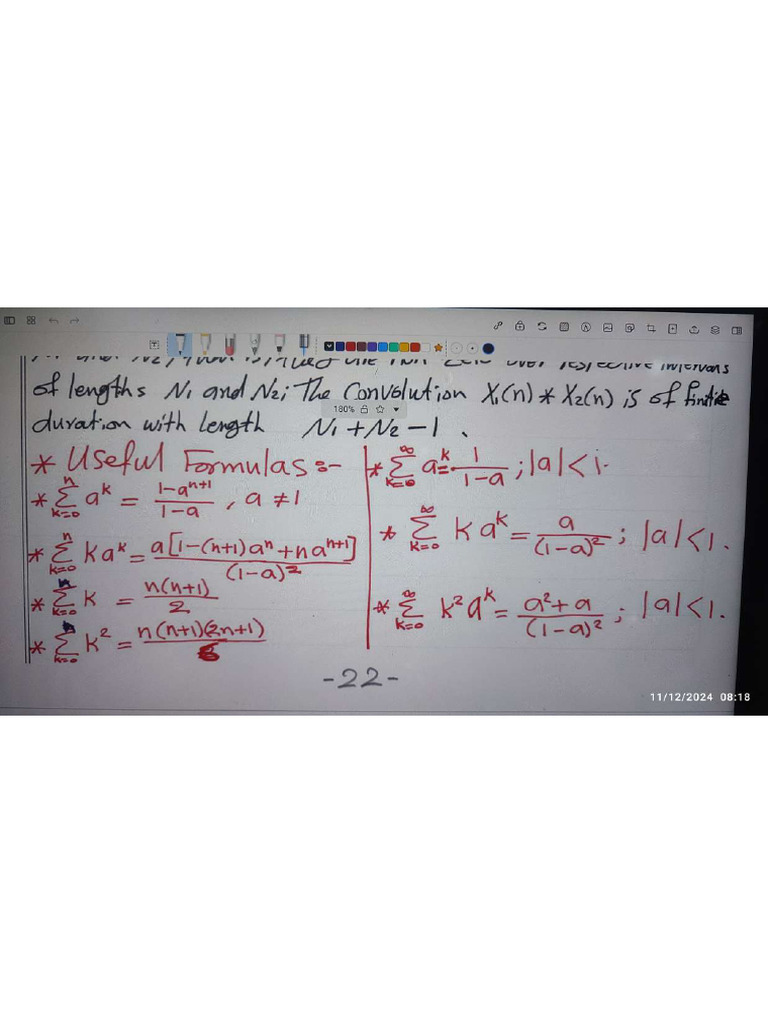 of lengths N₁ and N₂; The Convolution X₁(n) * X₂(n) is of finite
180%
duration with length N₁+N₂-1.
* Useful Formulas:-
* ∑_{k=0}^{n} a^k = (1-a^{n+1})/(1-a), a ≠ 1
* ∑_{k=0}^{n} k a^k = a[1-(n+1)a^n+na^{n+1}]/(1-a)^2
* ∑_{k=0}^{n} k = n(n+1)/2
* ∑_{k=0}^{n} k^2 = n(n+1)(2n+1)/6
* ∑_{k=0}^{∞} a^k = 1/(1-a) ; |a|<1.
* ∑_{k=0}^{∞} k a^k = a/(1-a)^2 ; |a|<1.
* ∑_{k=0}^{∞} k^2 a^k = (a^2+a)/(1-a)^2 ; |a|<1.
-22-
11/12/2024 08:18